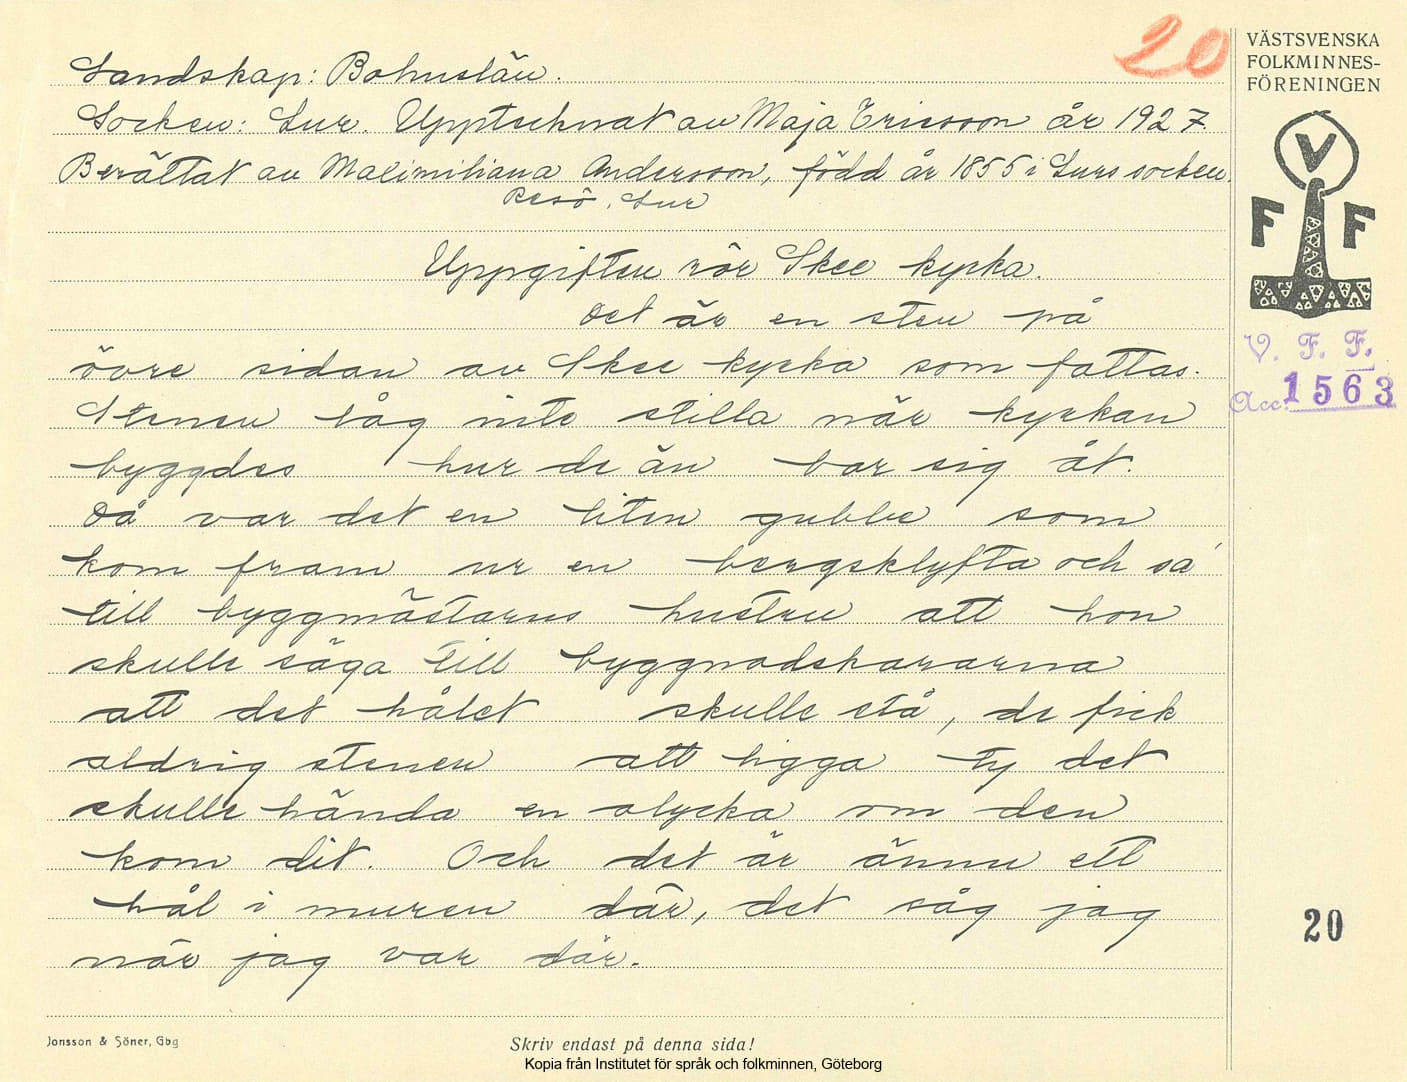 20
VÄSTSVENSKA
FOLKMINNES-
FÖRENINGEN
V
F F
V. F. F.
Acc. 1563
Landskap: Bohuslän.
Socken: Lur. Upptecknat av Maja Ericsson år 1927.
Berättat av Maximiliana Andersson, född år 1855 i Lurs socken.
Resö, Lur
Uppgiften rör Skee kyrka.
Det är en sten på
övre sidan av Skee kyrka som fattas.
Stenen låg inte stilla när kyrkan
byggdes hur de än bar sig åt.
Då var det en liten gubbe som
kom fram ur en bergsklyfta och sa
till byggmästarns hustru att hon
skulle säga till byggnadskararna
att det hålet skulle stå, de fick
aldrig stenen att ligga ty det
skulle hända en olycka om den
kom dit. Och det är ännu ett
hål i muren där, det såg jag
när jag var där.
20
Jonsson & Söner, Gbg
Skriv endast på denna sida!
Kopia från Institutet för språk och folkminnen, Göteborg